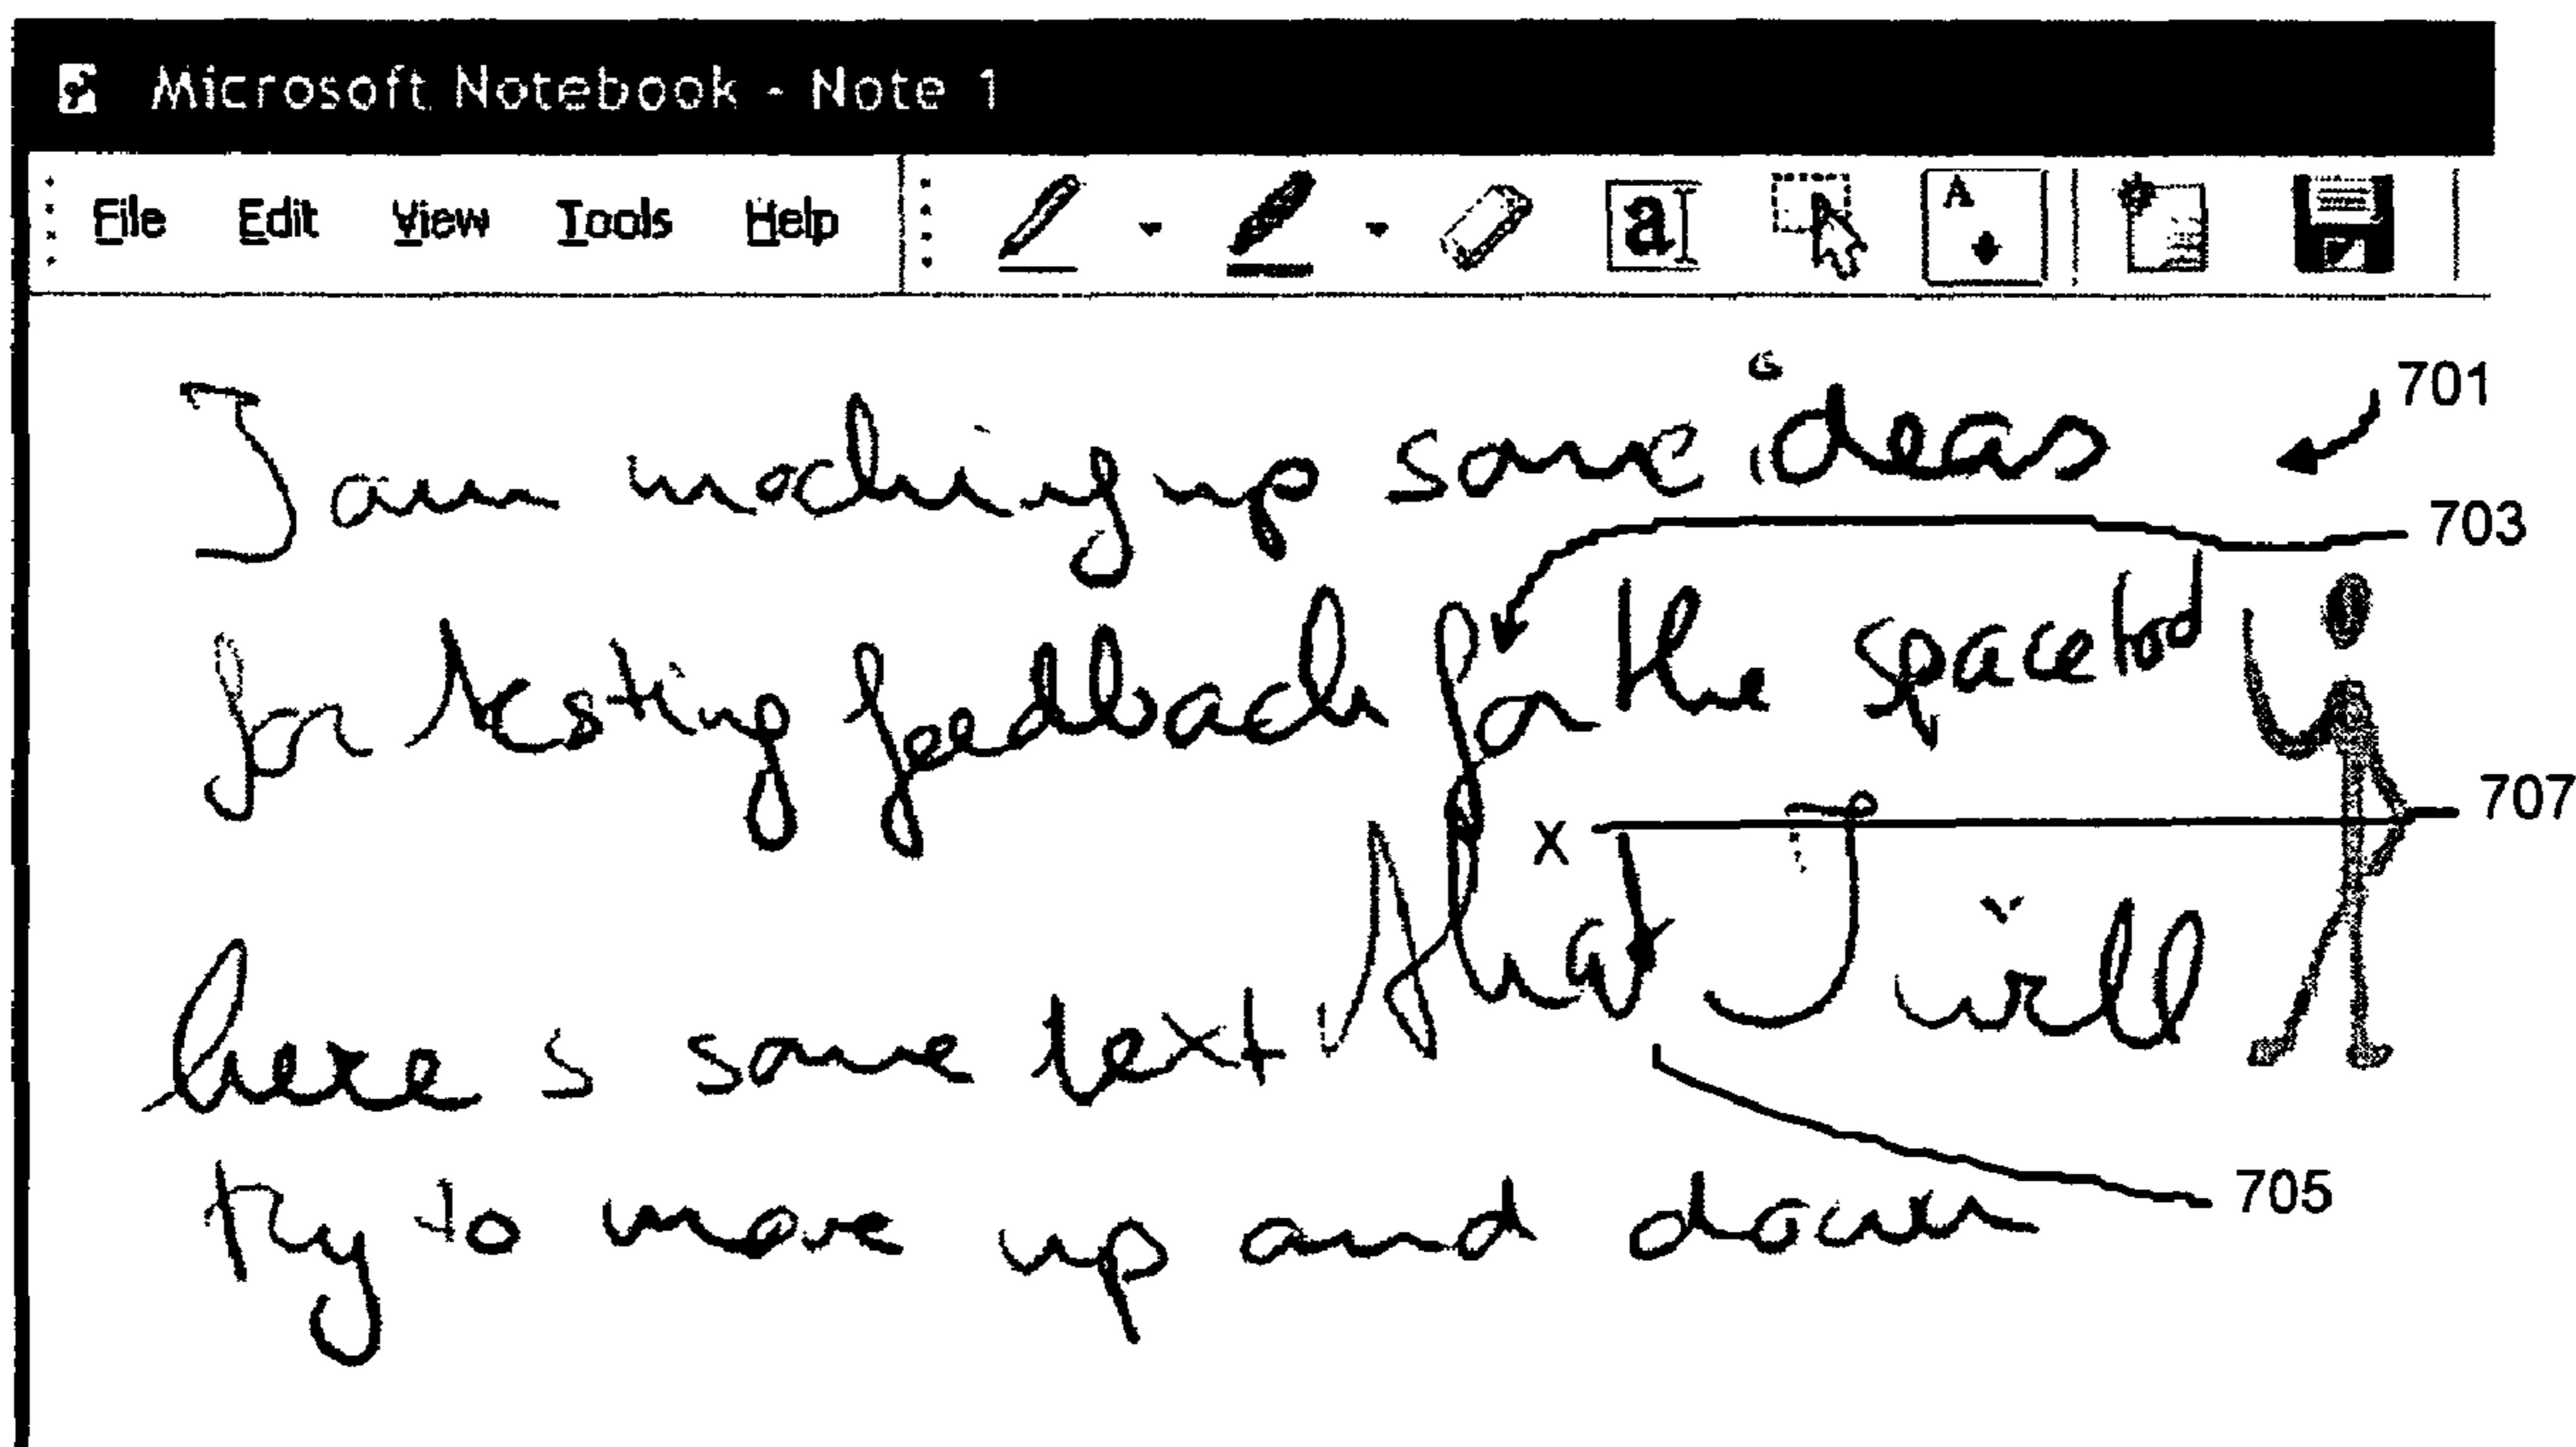 Microsoft Notebook - Note 1
File Edit View Tools Help a A
I am making up some ideas 701
703
for testing feedback for the space tool
X 707
here s some text that I will
705
try to move up and down